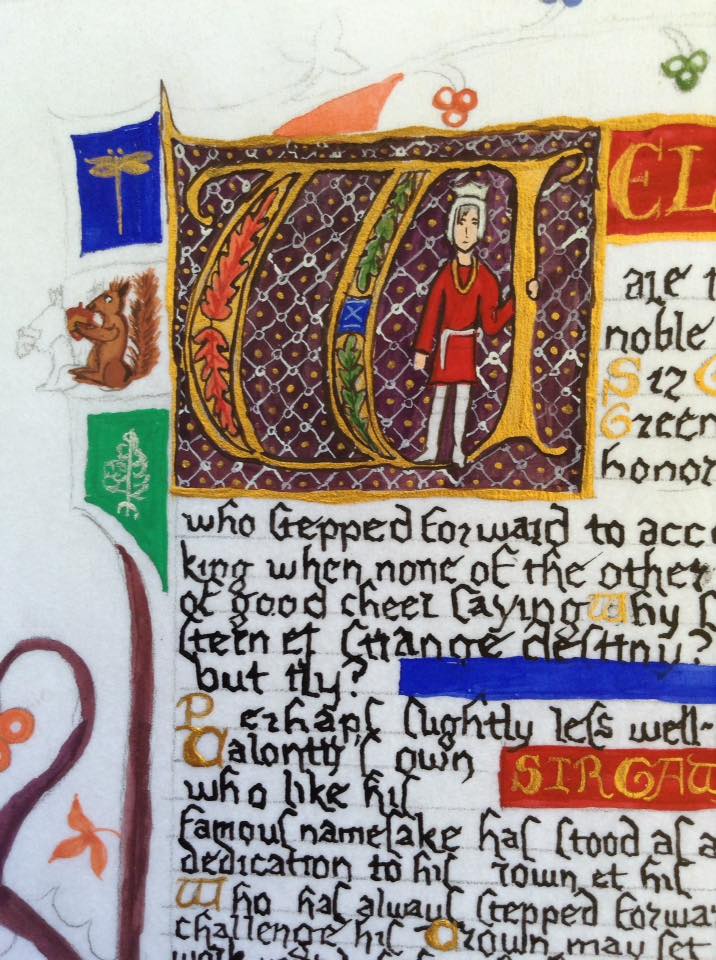 WEL
are t
noble
Sir G
Green
honor
who stepped forward to acc
king when none of the other
of good cheer saying Why
stern et strange destiny?
but try?
Perhaps slightly less well-
Calontir's own SIR GAW
who like his
famous namesake has stood as a
dedication to his crown et his
Who has always stepped forwar
challenge his Crown may set